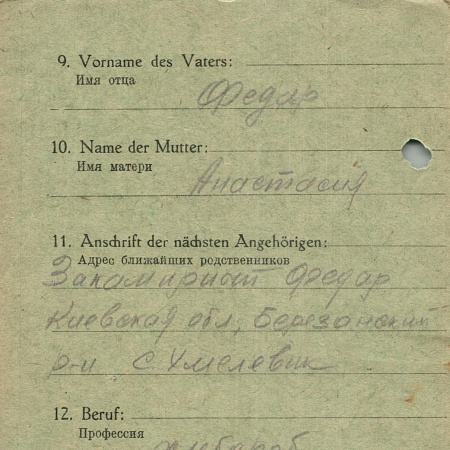 9. Vorname des Vaters:
Имя отца
Федар
10. Name der Mutter:
Имя матери
Анастасия
11. Anschrift der nächsten Angehörigen:
Адрес ближайших родственников
Федар
Киевская обл, Березанский
р-н с. Хмелевик
12. Beruf:
Профессия
хлебароб